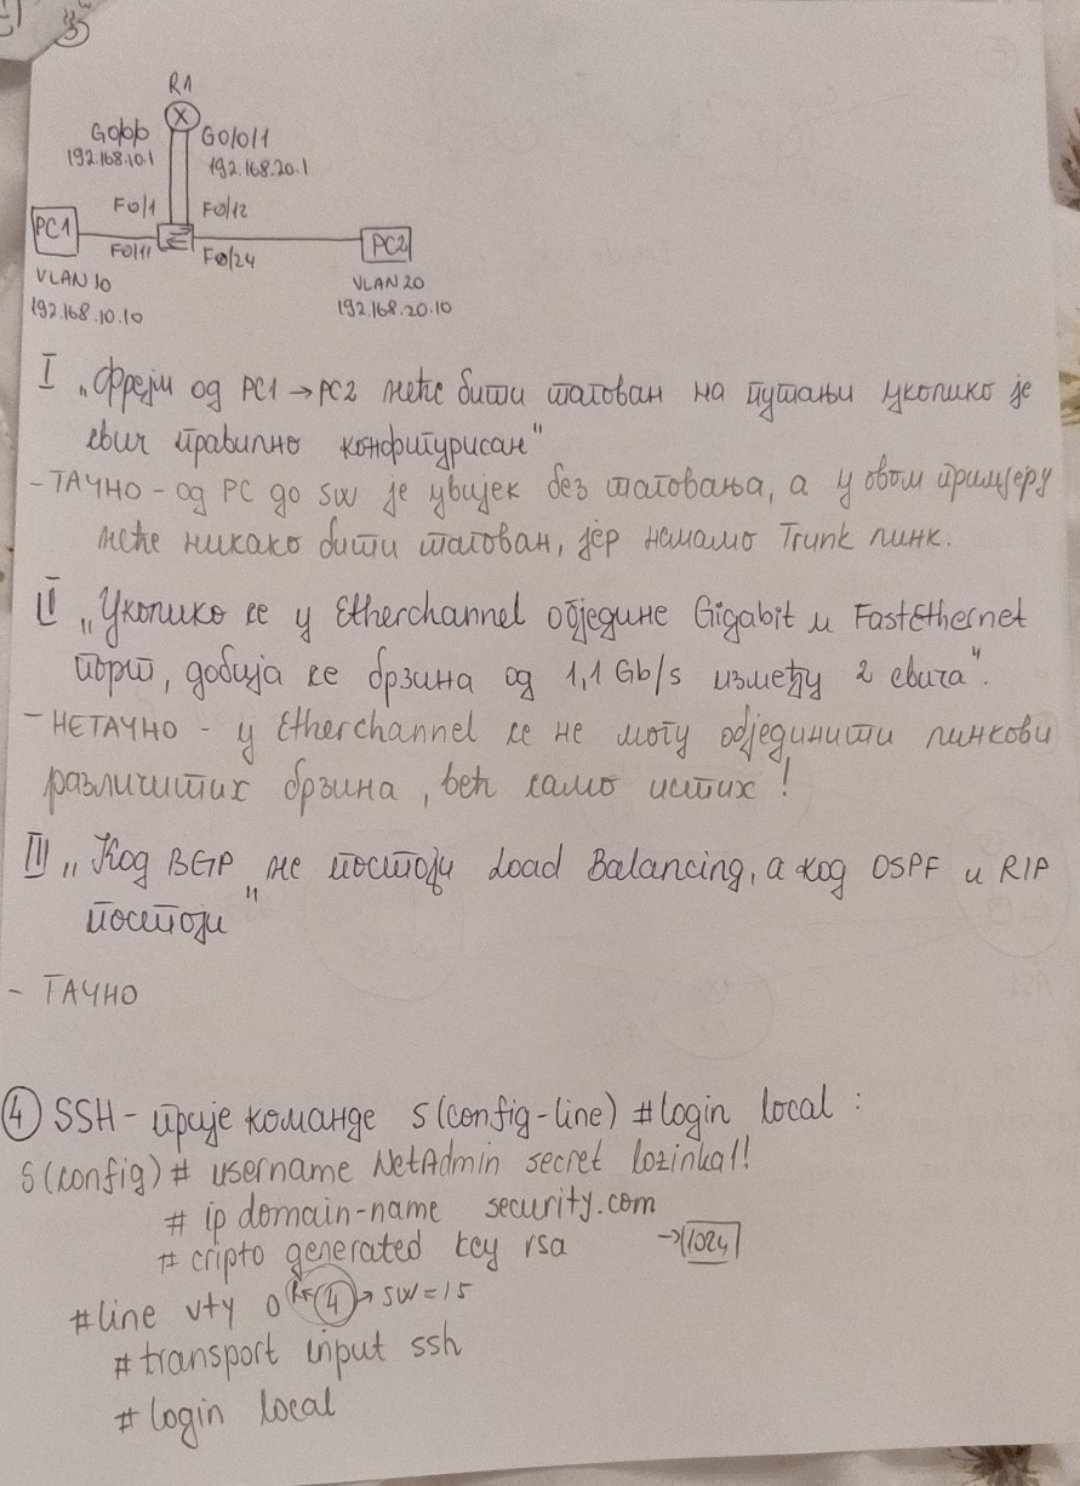 R1
G0/0/0 G0/0/1
192.168.10.1 192.168.20.1
F0/1 F0/12
PC1 PC2
F0/11 F0/24
VLAN 10 VLAN 20
192.168.10.10 192.168.20.10
I „Фрејм од PC1 → PC2 неће бити тагован на путањи уколико је
свич правилно конфигурисан"
- ТАЧНО - од PC до SW је увијек без таговања, а у овом примјеру
неће никако бити тагован, јер немамо Trunk линк.
II „Уколико се у Etherchannel обједине Gigabit и FastEthernet
порт, добија се брзина од 1,1 Gb/s између 2 свича".
- НЕТАЧНО - у Etherchannel се не могу објединити линкови
различитих брзина, већ само истих!
III „Код BGP не постоји Load Balancing, а код OSPF и RIP
постоји"
- ТАЧНО
④ SSH - прије команде S(config-line) #login local :
S(config) # username NetAdmin secret lozinka1!
# ip domain-name security.com
# cripto generated key rsa → 1024
#line vty 0 R← ④ → SW=15
# transport input ssh
# login local